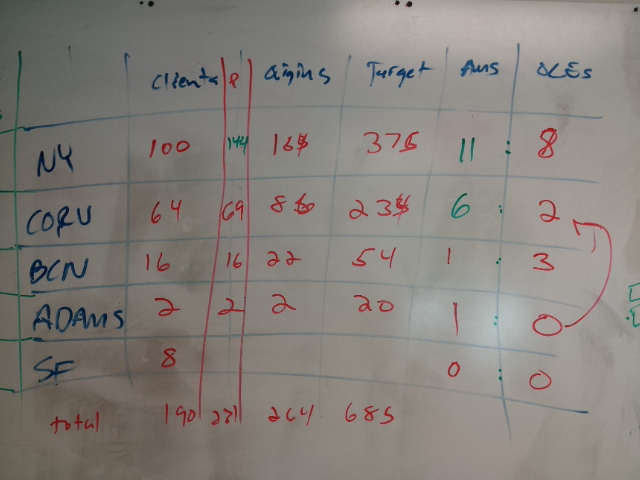 Clients P Origins Target AMs OCEs
NY 100 144 375 11 : 8
CORU 64 69 6 : 2
BCN 16 16 22 54 1 : 3
ADAMS 2 2 2 20 1 : 0
SF 8 0 : 0
total 190 231 264 685